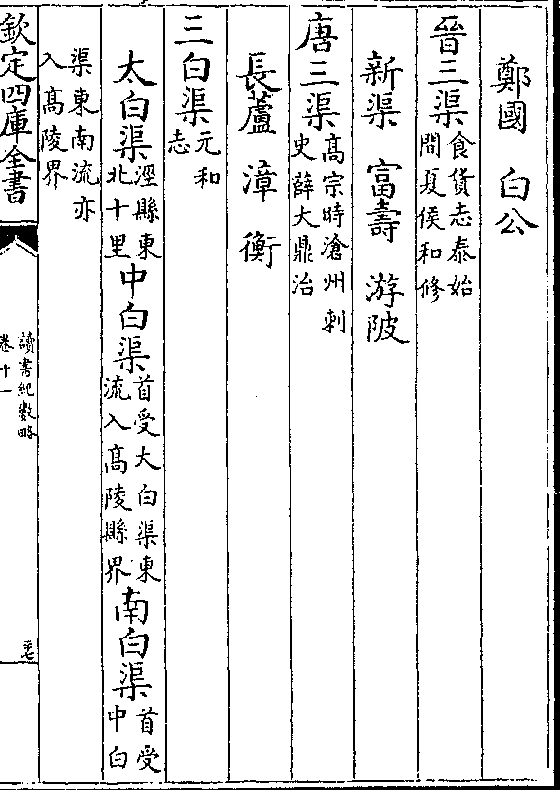 鄭國　白公
晉三渠食貨志泰始間夏侯和修
新渠　富壽　游陂
唐三渠髙宗時滄州刺史薛大鼎治
長蘆　漳　衡
三白渠元和志
太白渠涇縣東北十里中白渠首受大白渠東流入髙陵縣界南白渠首受中白
渠東南流亦入髙陵界
欽定四庫全書
讀書紀數略
卷十一